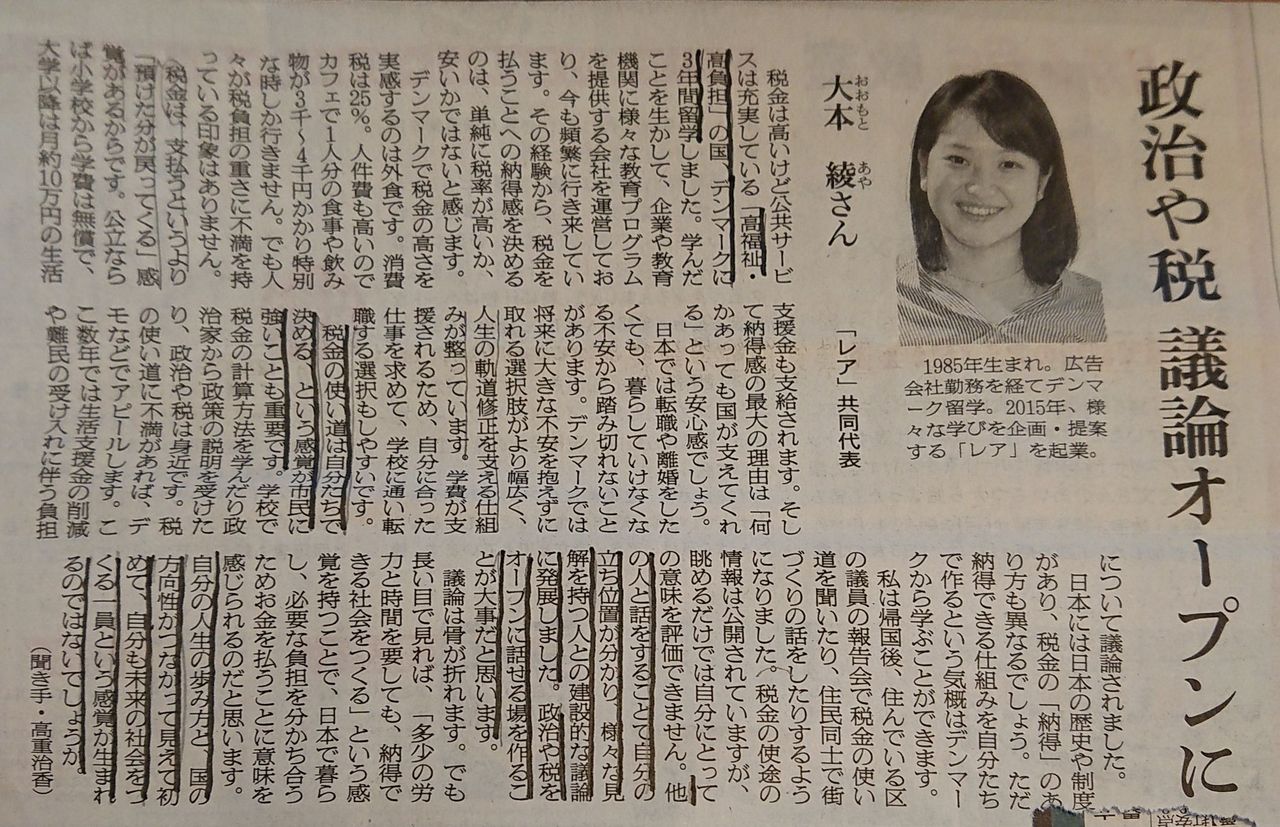 政治や税 議論オープンに
1985年生まれ。広告
会社勤務を経てデンマ
ーク留学。2015年、様
々な学びを企画・提案
する「レア」を起業。
「レア」共同代表
おおもと あや
大本 綾さん
税金は高いけど公共サービ
スは充実している「高福祉・
高負担」の国、デンマークに
3年間留学しました。学んだ
ことを生かして、企業や教育
機関に様々な教育プログラム
を提供する会社を運営してお
り、今も頻繁に行き来してい
ます。その経験から、税金を
払うことへの納得感を決める
のは、単純に税率が高いか、
安いかではないと感じます。
デンマークで税金の高さを
実感するのは外食です。消費
税は25%。人件費も高いので
カフェで1人分の食事や飲み
物が3千〜4千円かかり特別
な時しか行きません。でも人
々が税負担の重さに不満を持
っている印象はありません。
税金は、支払うというより
「預けた分が戻ってくる」感
覚があるからです。公立なら
ば小学校から学費は無償で、
大学以降は月約10万円の生活
支援金も支給されます。そし
て納得感の最大の理由は「何
かあっても国が支えてくれ
る」という安心感でしょう。
日本では転職や離婚をした
くても、暮らしていけなくな
る不安から踏み切れないこと
があります。デンマークでは
将来に大きな不安を抱えずに
取れる選択肢がより幅広く、
人生の軌道修正を支える仕組
みが整っています。学費が支
援されるため、自分に合った
仕事を求めて、学校に通い転
職する選択もしやすいです。
税金の使い道は自分たちで
決める、という感覚が市民に
強いことも重要です。学校で
税金の計算方法を学んだり政
治家から政策の説明を受けた
り、政治や税は身近です。税
の使い道に不満があれば、デ
モなどでアピールします。こ
こ数年では生活支援金の削減
や難民の受け入れに伴う負担
について議論されました。
日本には日本の歴史や制度
があり、税金の「納得」のあ
り方も異なるでしょう。ただ
納得できる仕組みを自分たち
で作るという気概はデンマー
クから学ぶことができます。
私は帰国後、住んでいる区
の議員の報告会で税金の使い
道を聞いたり、住民同士で街
づくりの話をしたりするよう
になりました。税金の使途の
情報は公開されていますが、
眺めるだけでは自分にとって
の意味を評価できません。他
の人と話をすることで自分の
立ち位置が分かり、様々な見
解を持つ人との建設的な議論
に発展しました。政治や税を
オープンに話せる場を作るこ
とが大事だと思います。
議論は骨が折れます。でも
長い目で見れば、「多少の労
力と時間を要しても、納得で
きる社会をつくる」という感
覚を持つことで、日本で暮ら
し、必要な負担を分かち合う
ためお金を払うことに意味を
感じられるのだと思います。
自分の人生の歩み方と、国の
方向性がつながって見えて初
めて、自分も未来の社会をつ
くる一員という感覚が生まれ
るのではないでしょうか。
（聞き手・高重治香）